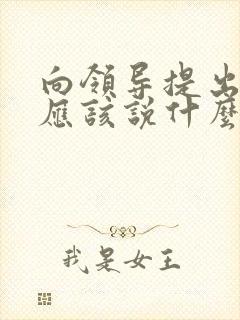 向領导提出
應該說什麼
我是女王